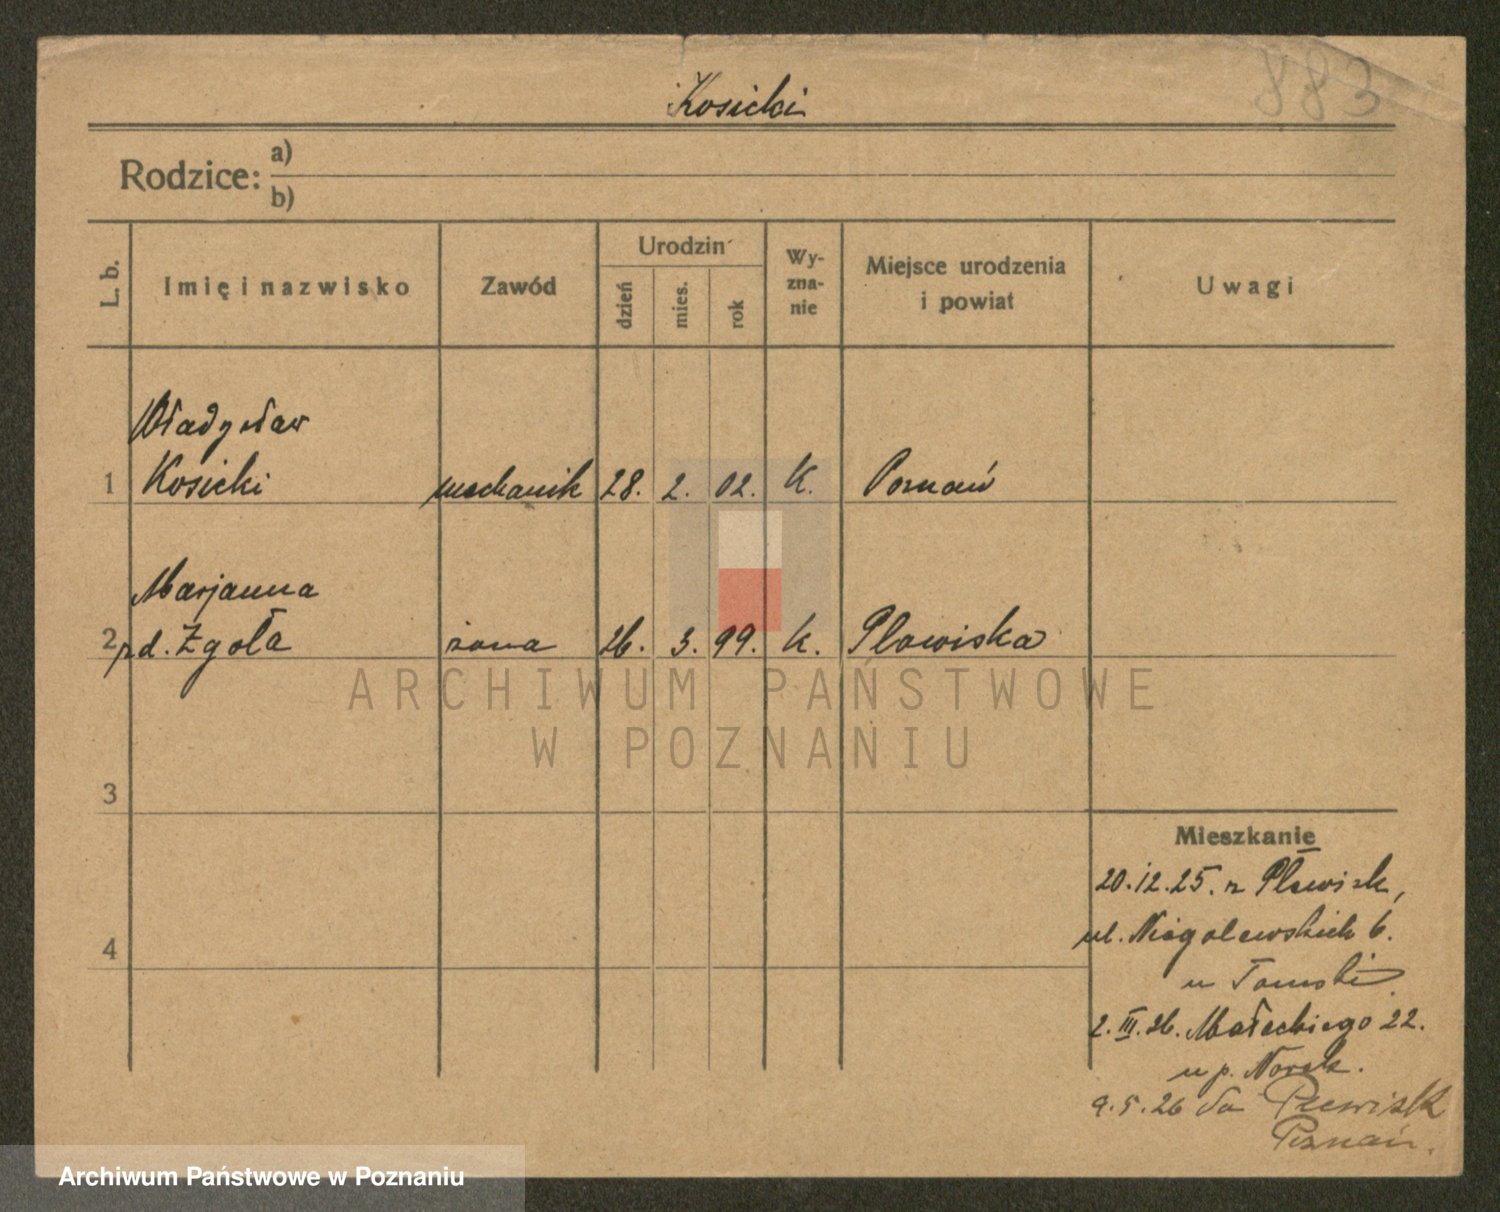 883
Kosicki
Rodzice: a)
b)
L. b.
Imię i nazwisko
Zawód
Urodzin
dzień
mies.
rok
Wy-
zna-
nie
Miejsce urodzenia
i powiat
Uwagi
Władysław
1 Kosicki mechanik 28. 2. 02. K. Poznań
Marjanna
2 żona 26. 3. 99. k. Plewiska
zd. Zgoła
ARCHIWUM PAŃSTWOWE
W POZNANIU
3
Mieszkanie
20.12.25. z Plewisk,
ul. Niegolewskich 6.
4
u Tomski
2.III.26. Małeckiego 22.
u p. Norek.
9.5.26 do Plewisk
Poznań.
Archiwum Państwowe w Poznaniu